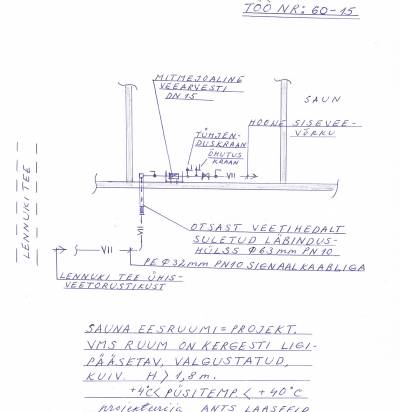 TÖÖ NR: 60-15
MITMEJOALINE
VEEARVESTI
DN 15
SAUN
HOONE SISEVEE-
VÕRKU
TÜHJEN-
DUSKRAAN
ÕHUTUS
KRAAN
VII
LENNUKI TEE
OTSAST VEETIHEDALT
SULETUD LÄBINDUS-
HÜLSS Φ63mm PN10
VII
PE Φ32mm PN10 SIGNAALKAABLIGA
LENNUKI TEE ÜHIS-
VEETORUSTIKUST
SAUNA EESRUUMI = PROJEKT.
VMS RUUM ON KERGESTI LIGI-
PÄÄSETAV, VALGUSTATUD,
KUIV. H > 1,8 m.
+4°C < PÜSITEMP. < +40°C
projekteerija ANTS LAASFELD